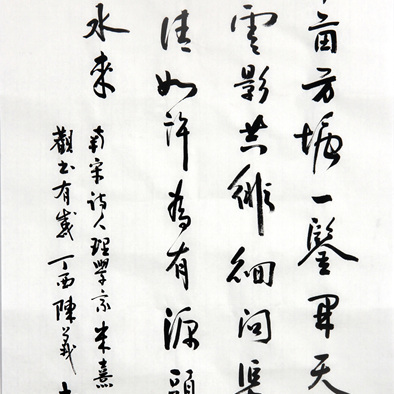 亩方塘一鑒開天
雲影共徘徊問渠
清如許為有源頭
水來
南宋詩人理學家朱熹
觀書有感丁酉陳義